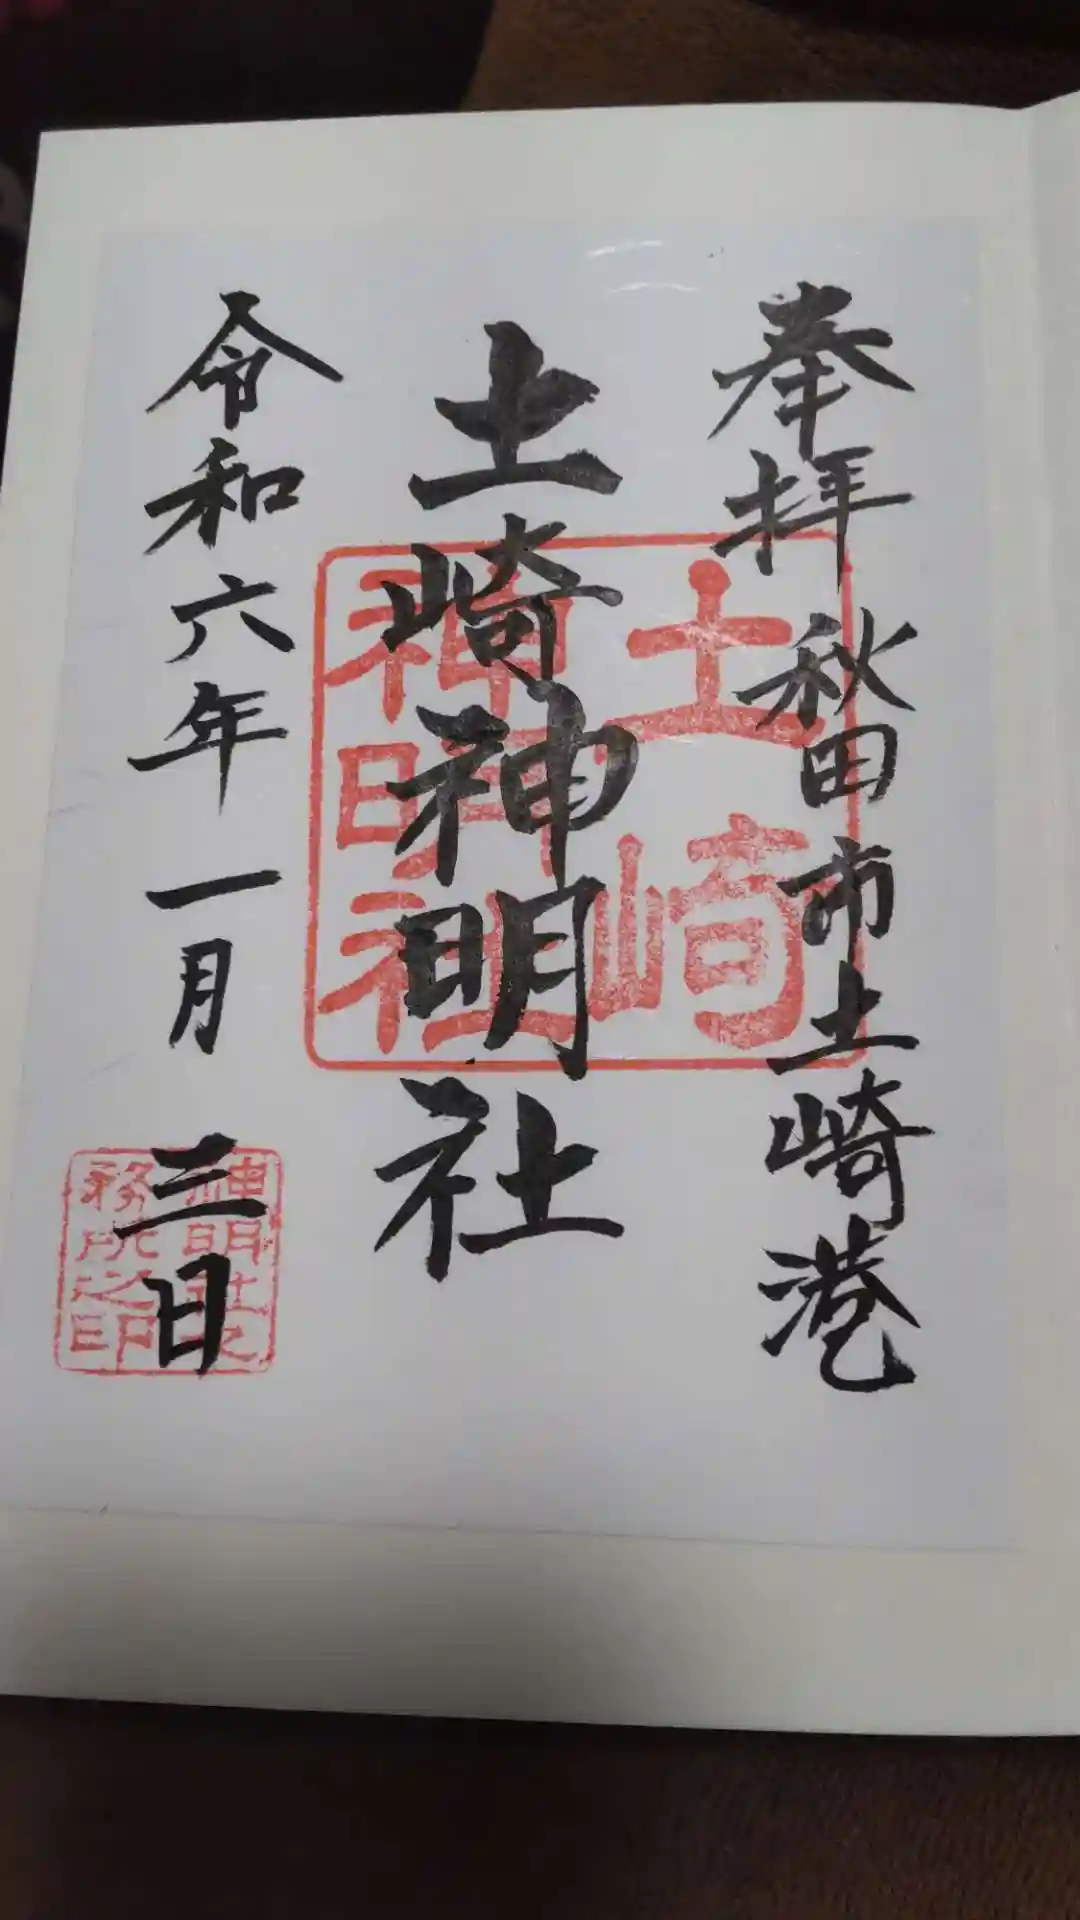 奉拝 秋田市土崎港
土崎神明社
土崎
神明社
令和六年一月三日
神明社之
務所之印